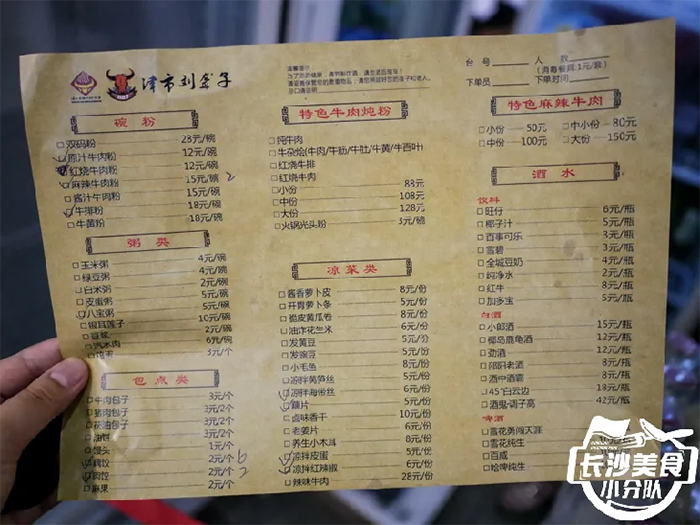 津市刘聋子
台号
人数
(消毒餐具:1元/套)
下单员
下单时间
碗粉
双码粉 23元/碗
原汁牛肉粉 12元/碗
红烧牛肉粉 12元/碗
麻辣牛肉粉 15元/碗 2
酱汁牛肉粉 15元/碗
牛排粉 18元/碗
牛黄粉 18元/碗
粥类
玉米粥 4元/碗
绿豆粥 4元/碗
白米粥 2元/碗
皮蛋粥 5元/碗
八宝粥 5元/碗
银耳莲子 10元/碗
豆浆 2元/碗
汽水肉 6元/碗
3元/个
包点类
牛肉包子 3元/个
猪肉包子 3元/2个
花油包子 3元/2个
油饼 3元/个
馒头 1元/个
2元/个 6
肉饺 2元/个 2
麻果 2元/个
特色牛肉炖粉
炖牛肉
牛杂烩(牛肉/牛筋/牛肚/牛黄/牛百叶)
红烧牛排
红烧牛肉
小份 83元
中份 108元
大份 128元
火锅光头粉 3元/碗
凉菜类
酱香萝卜皮 8元/份
开胃萝卜条 5元/份
脆皮黄瓜卷 8元/份
油炸花生米 6元/份
发黄豆 5元/份
发豌豆 5元/份
小毛鱼 8元/份
凉拌莴笋丝 6元/份
凉拌海带丝 6元/份
藕片 5元/份
卤味香干 10元/份
老姜片 6元/份
养生小木耳 8元/份
凉拌皮蛋 5元/份
凉拌红辣椒 6元/份
辣味牛肉 28元/份
特色麻辣牛肉
小份 50元 中小份 80元
中份 100元 大份 150元
酒水
饮料
旺仔 6元/瓶
椰子汁 5元/瓶
百事可乐 3元/瓶
雪碧 3元/瓶
全城豆奶 4元/瓶
纯净水 2元/瓶
红牛 8元/瓶
加多宝 5元/瓶
白酒
小郎酒 15元/瓶
椰岛鹿龟酒 12元/瓶
劲酒 12元/瓶
邵阳老酒 8元/瓶
酒中酒霸 8元/瓶
45°白云边
酒鬼·调子高 42元/瓶
啤酒
雪花勇闯天涯
雪花纯生
百威
哈啤纯生
长沙美食
小分队